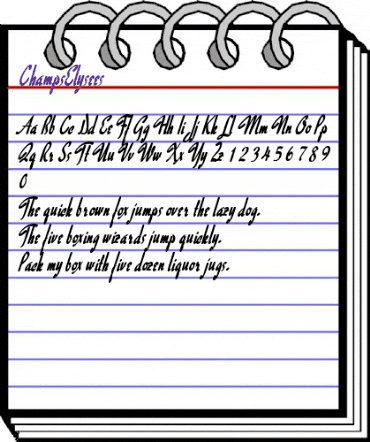 ChampsElysees
Aa Bb Cc Dd Ee Ff Gg Hh Ii Jj Kk Ll Mm Nn Oo Pp
Qq Rr Ss Tt Uu Vv Ww Xx Yy Zz 1 2 3 4 5 6 7 8 9
0
The quick brown fox jumps over the lazy dog.
The five boxing wizards jump quickly.
Pack my box with five dozen liquor jugs.